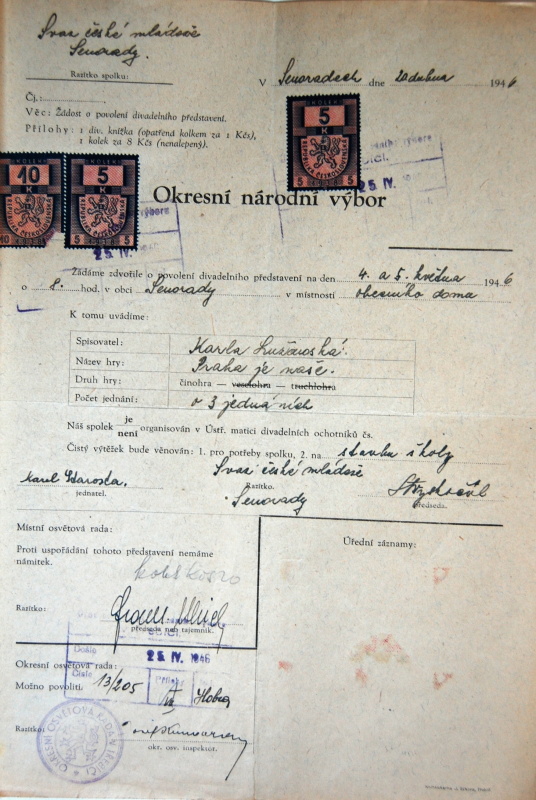 Svaz české mládeže
Senorady.
Razítko spolku:
V Senoradech dne 20 dubna 1946
Čj.:
Věc: Žádost o povolení divadelního představení.
Přílohy: 1 div. knížka (opatřená kolkem za 1 Kčs),
1 kolek za 8 Kčs (nenalepený).
KOLEK
10
K
REPUBLIKA ČESKOSLOVENSKÁ
1938
KOLEK
5
K
5 1938 5
REPUBLIKA ČESKOSLOVENSKÁ
KOLEK
5
K
5 1938 5
REPUBLIKA ČESKOSLOVENSKÁ
25. IV. 1946
25. IV.
Okresní národní výbor
Žádáme zdvořile o povolení divadelního představení na den 4. a 5. května 1946
o 8. hod. v obci Senorady v místností obecního domu
K tomu uvádíme:
Spisovatel: Karla Lužanská.
Název hry: Praha je naše.
Druh hry: činohra — veselohra — truchlohra
Počet jednání: o 3 jednáních
Náš spolek je
není organisován v Ústř. matici divadelních ochotníků čs.
Čistý výtěžek bude věnován: 1. pro potřeby spolku, 2. na stavbu školy
Svaz české mládeže
Karel Starosta.
Razítko.
jednatel.
Senorady
předseda.
Místní osvětová rada:
Úřední záznamy:
Proti uspořádání tohoto představení nemáme
námitek.
Razítko:
předseda neb tajemník.
Došlo 25. IV. 1946
Okresní osvětová rada:
Číslo
Přílohy
Možno povoliti 13/205
Razítko:
okr. osv. inspektor.